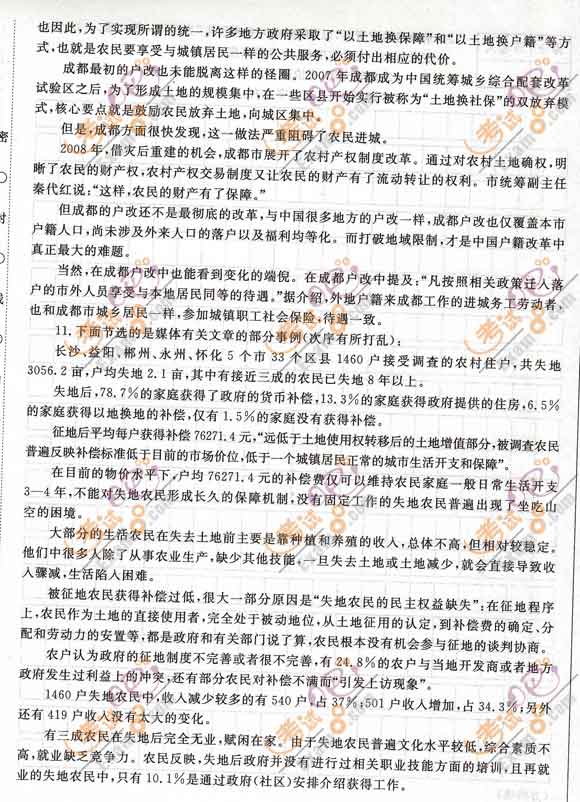 也因此，为了实现所谓的统一，许多地方政府采取了“以土地换保障”和“以土地换户籍”等方
式，也就是农民要享受与城镇居民一样的公共服务，必须付出相应的代价。
成都最初的户改也未能脱离这样的怪圈。2007年成都成为中国统筹城乡综合配套改革
试验区之后，为了形成土地的规模集中，在一些区县开始实行被称为“土地换社保”的双放弃模
式，核心要点就是鼓励农民放弃土地，向城区集中。
但是，成都方面很快发现，这一做法严重阻碍了农民进城。
2008年，借灾后重建的机会，成都市展开了农村产权制度改革。通过对农村土地确权，明
晰了农民的财产权，农村产权交易制度又让农民的财产有了流动转让的权利。市统筹副主任
秦代红说：“这样，农民的财产有了保障。”
但成都的户改还不是最彻底的改革，与中国很多地方的户改一样，成都户改也仅覆盖本市
户籍人口，尚未涉及外来人口的落户以及福利均等化。而打破地域限制，才是中国户籍改革中
真正最大的难题。
当然，在成都户改中也能看到变化的端倪。在成都户改中提及：“凡按照相关政策迁入落
户的市外人员享受与本地居民同等的待遇。”据介绍，外地户籍来成都工作的进城务工劳动者，
也和成都市城乡居民一样，参加城镇职工社会保险，待遇一致。
11.下面节选的是媒体有关文章的部分事例(次序有所打乱)：
长沙、益阳、郴州、永州、怀化5个市33个区县1460户接受调查的农村住户，共失地
3056.2亩，户均失地2.1亩，其中有接近三成的农民已失地8年以上。
失地后，78.7％的家庭获得了政府的货币补偿，13.3％的家庭获得政府提供的住房，6.5％
的家庭获得以地换地的补偿，仅有1.5％的家庭没有获得补偿。
征地后平均每户获得补偿76271.4元，“远低于土地使用权转移后的土地增值部分，被调查农民
普遍反映补偿标准低于目前的市场价位，低于一个城镇居民正常的城市生活开支和保障”。
在目前的物价水平下，户均76271.4元的补偿费仅可以维持农民家庭一般日常生活开支
3—4年，不能对失地农民形成长久的保障机制，没有固定工作的失地农民普遍出现了坐吃山
空的困境。
大部分的生活农民在失去土地前主要是靠种植和养殖的收入，总体不高，但相对较稳定。
他们中很多人除了从事农业生产，缺少其他技能，一旦失去土地或土地减少，就会直接导致收
入骤减，生活陷入困难。
被征地农民获得补偿过低，很大一部分原因是“失地农民的民主权益缺失”：在征地程序
上，农民作为土地的直接使用者，完全处于被动地位，从土地征用的认定，到补偿费的确定、分
配和劳动力的安置等，都是政府和有关部门说了算，农民根本没有机会参与征地的谈判协商。
农户认为政府的征地制度不完善或者很不完善，有24.8％的农户与当地开发商或者地方
政府发生过利益上的冲突，还有部分农民对补偿不满而“引发上访现象”。
1460户失地农民中，收入减少较多的有540户，占37％；501户收入增加，占34.3％；另外
还有419户收入没有太大的变化。
有三成农民在失地后完全无业，赋闲在家。由于失地农民普遍文化水平较低，综合素质不
高，就业缺乏竞争力。农民反映，失地后政府并没有进行过相关职业技能方面的培训，且再就
业的失地农民中，只有10.1％是通过政府(社区)安排介绍获得工作。